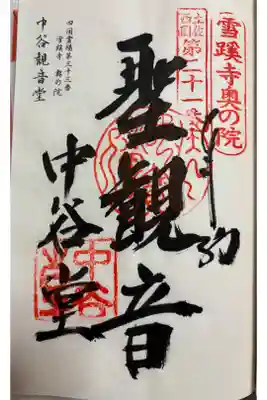 雪蹊寺奥の院
土佐
西国
第二十一
聖觀音
中谷堂
中谷
四国霊場第三十三番
雪蹊寺 奥の院
中谷観音堂